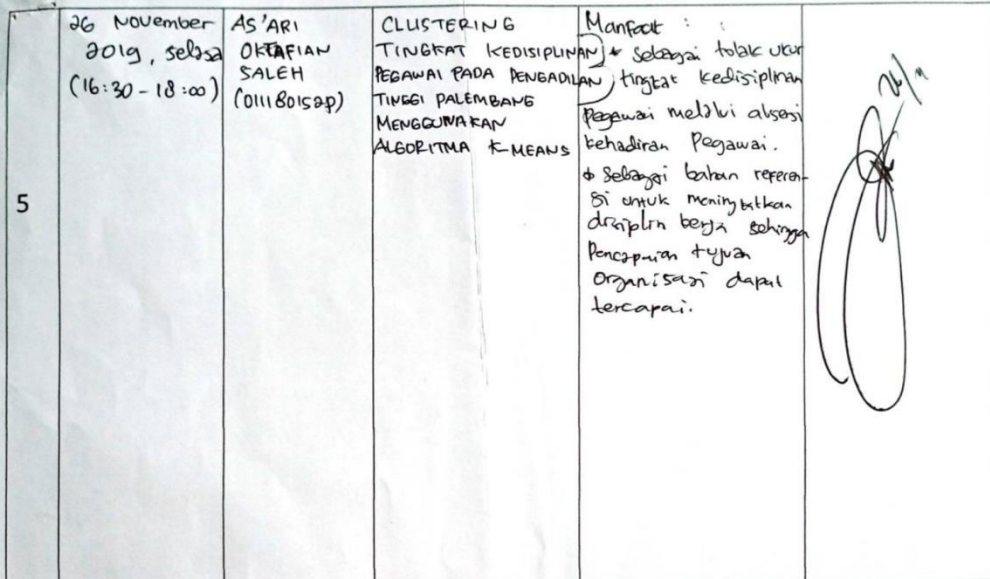 5
26 November
2019, selasa
(16:30 - 18:00)
AS'ARI
OKTAFIAN
SALEH
(011180152p)
CLUSTERING
TINGKAT KEDISIPLINAN
PEGAWAI PADA PENGADILAN
TINGGI PALEMBANG
MENGGUNAKAN
ALGORITMA K-MEANS
Manfaat :
* sebagai tolak ukur
tingkat kedisiplinan
Pegawai melalui absensi
kehadiran Pegawai.
* Sebagai bahan referen-
si untuk meningkatkan
disiplin kerja sehingga
Pencapaian tujuan
Organisasi dapat
tercapai.
26/11